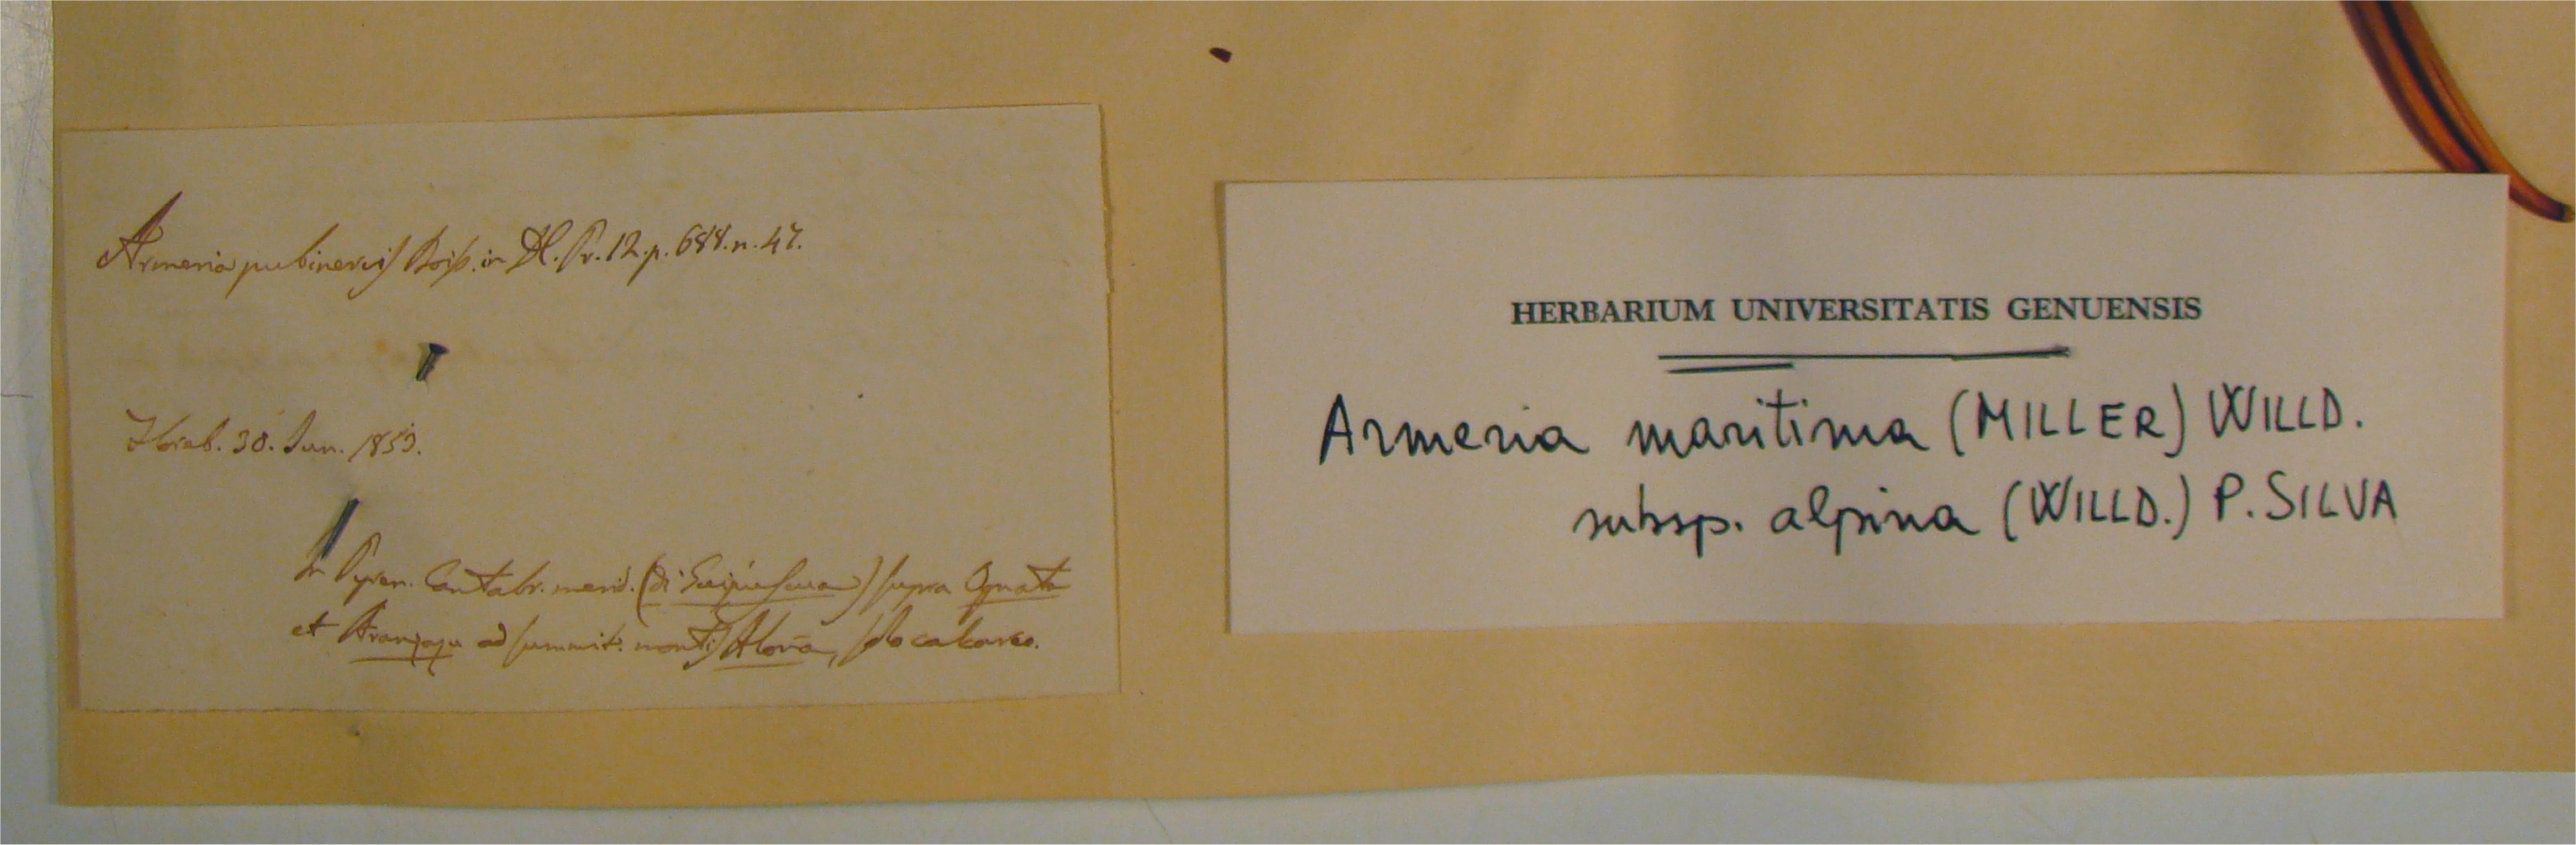 Armeria pubinervis Boiss. in DC. Pr. 12. p. 688. n. 47.
30. Jun. 1853.
In Pyren. Cantabr. merid. (di Guipuscua) supra Ognate
et Aranzazu ad summit. montis Aloña, solo calcareo.
HERBARIUM UNIVERSITATIS GENUENSIS
Armeria maritima (MILLER) WILLD.
subsp. alpina (WILLD.) P. SILVA